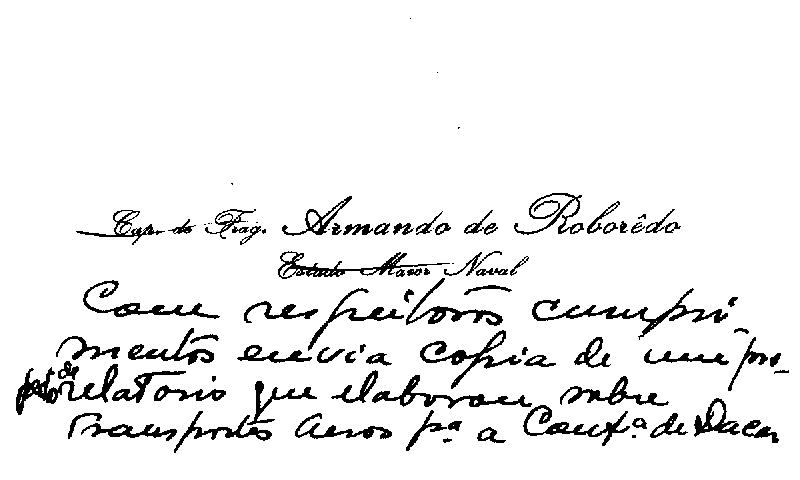 Cap. de Frag. Armando de Roborêdo
Estado Maior Naval
Com respeitosos cumpri-
mentos envia copia de um pro-
jeto de relatorio que elaborou sobre
transportes aereos pª a Confª. de Dacar